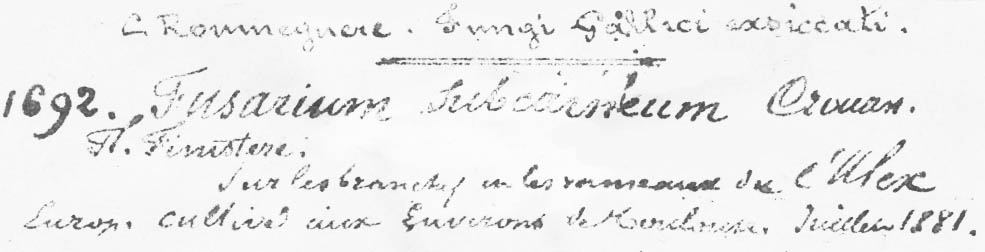 C. Roumeguere. Fungi Gallici exsiccati.
1692. Fusarium subcarneum Crouan.
Fl. Finistere.
Sur les branches les rameaux de l'Ulex
Europ. cultivé aux Environs de Toulouse. Juillet 1881.